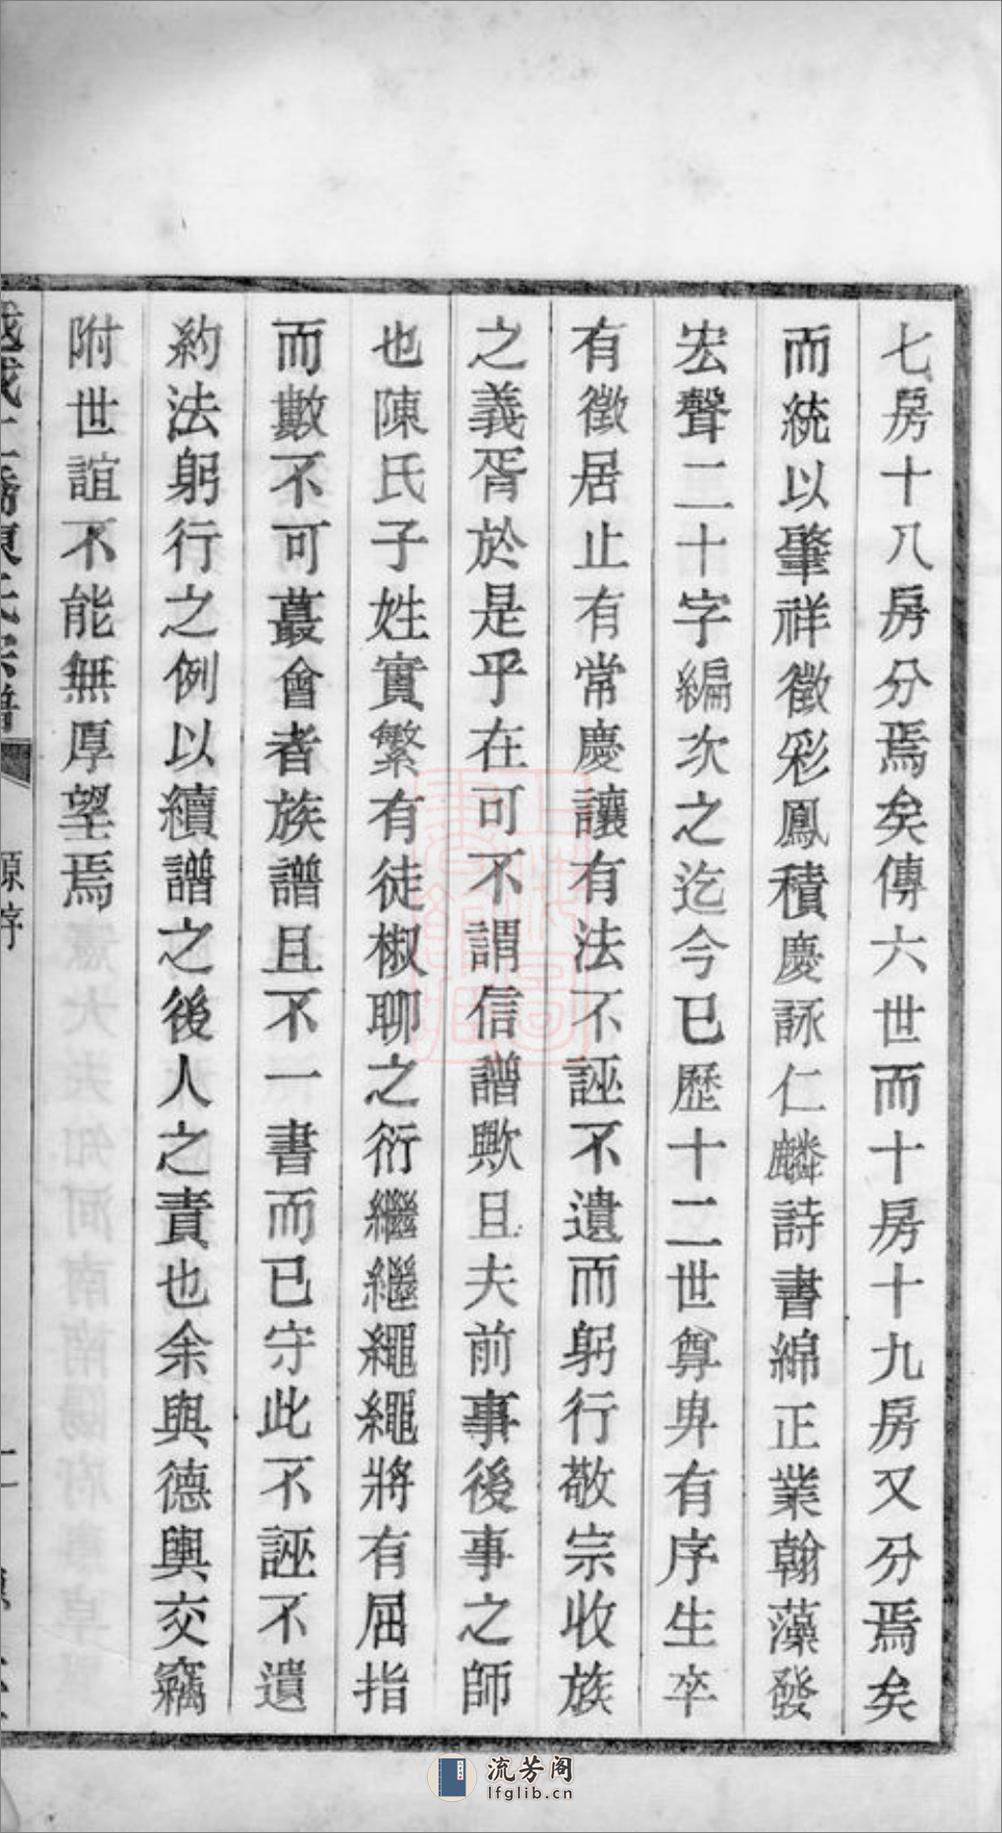 七房十八房分焉矣傳六世而十房十九房又分焉矣
而統以肇祥徵彩鳳積慶詠仁麟詩書綿正業翰藻發
宏聲二十字編次之迄今已歷十二世尊卑有序生卒
有徵居止有常慶讓有法不誣不遺而躬行敬宗收族
之義胥於是乎在可不謂信譜歟且夫前事後事之師
也陳氏子姓實繁有徒椒聊之衍繼繼繩繩將有屈指
而數不可蕞會者族譜且不一書而已守此不誣不遺
約法躬行之例以續譜之後人之責也余與德輿交竊
附世誼不能無厚望焉
陳氏宗譜
原序
上海圖書館藏
流芳阁
lfglib.cn